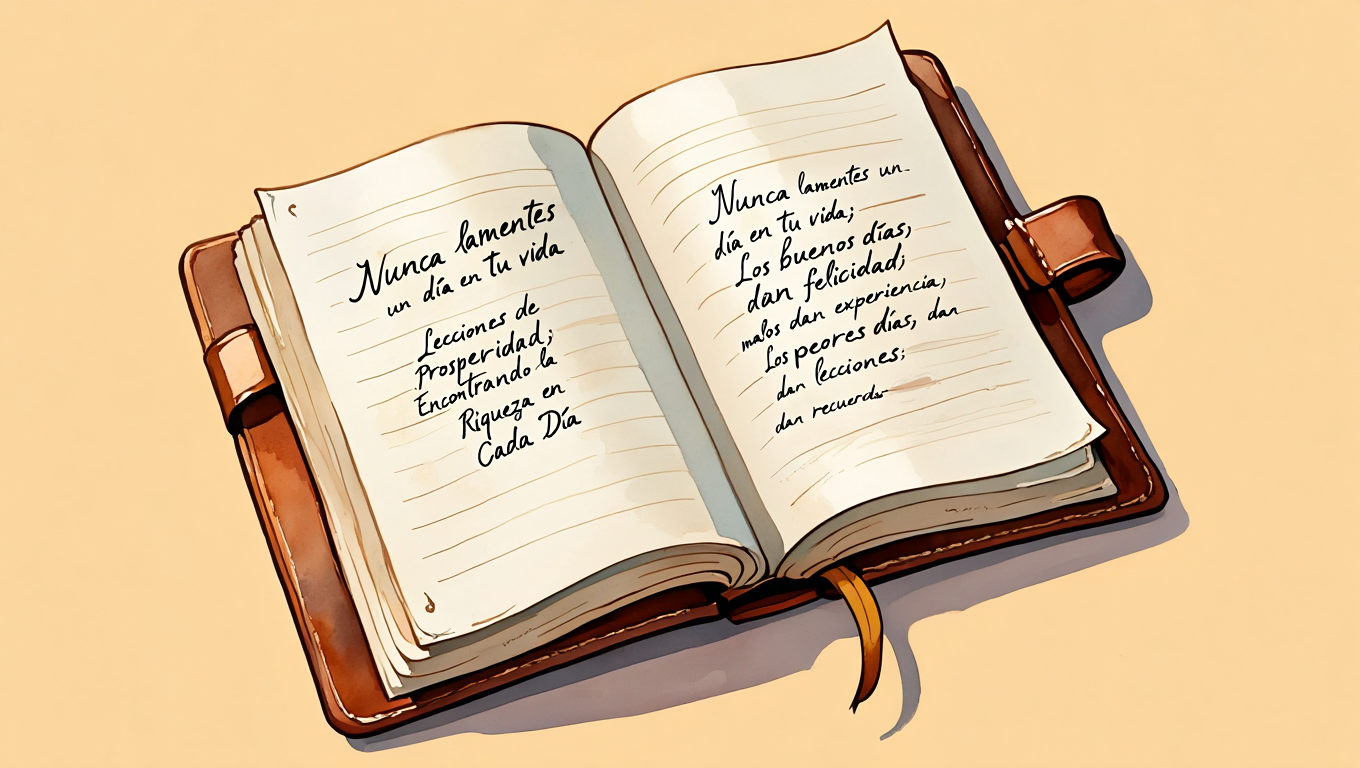 Nunca lamentes
un día en tu vida
Lecciones de
Prosperidad;
Encontrando la
Riqueza en
Cada Día
Nunca lamentes un
día en tu vida;
Los buenos días,
dan felicidad;
malos dan experiencia,
Los peores días, dan
dan lecciones;
dan